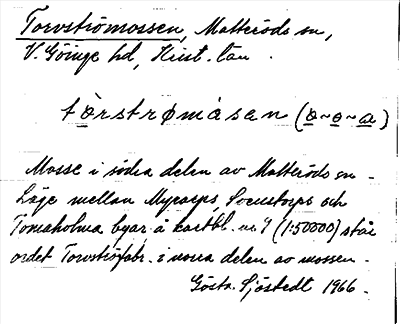 Torvströmossen, Matteröds sn,
V. Göinge hd, Krist. län.
tòrstrømåsen (o~o~a)
Mosse i södra delen av Matteröds sn -
Läge mellan Myrarps, Socustorps och
Tomsholma byar å kartbl. nr 9 (1:50000) står
ordet Torvströfabr. i norra delen av mossen -
Gösta Sjöstedt 1966 -